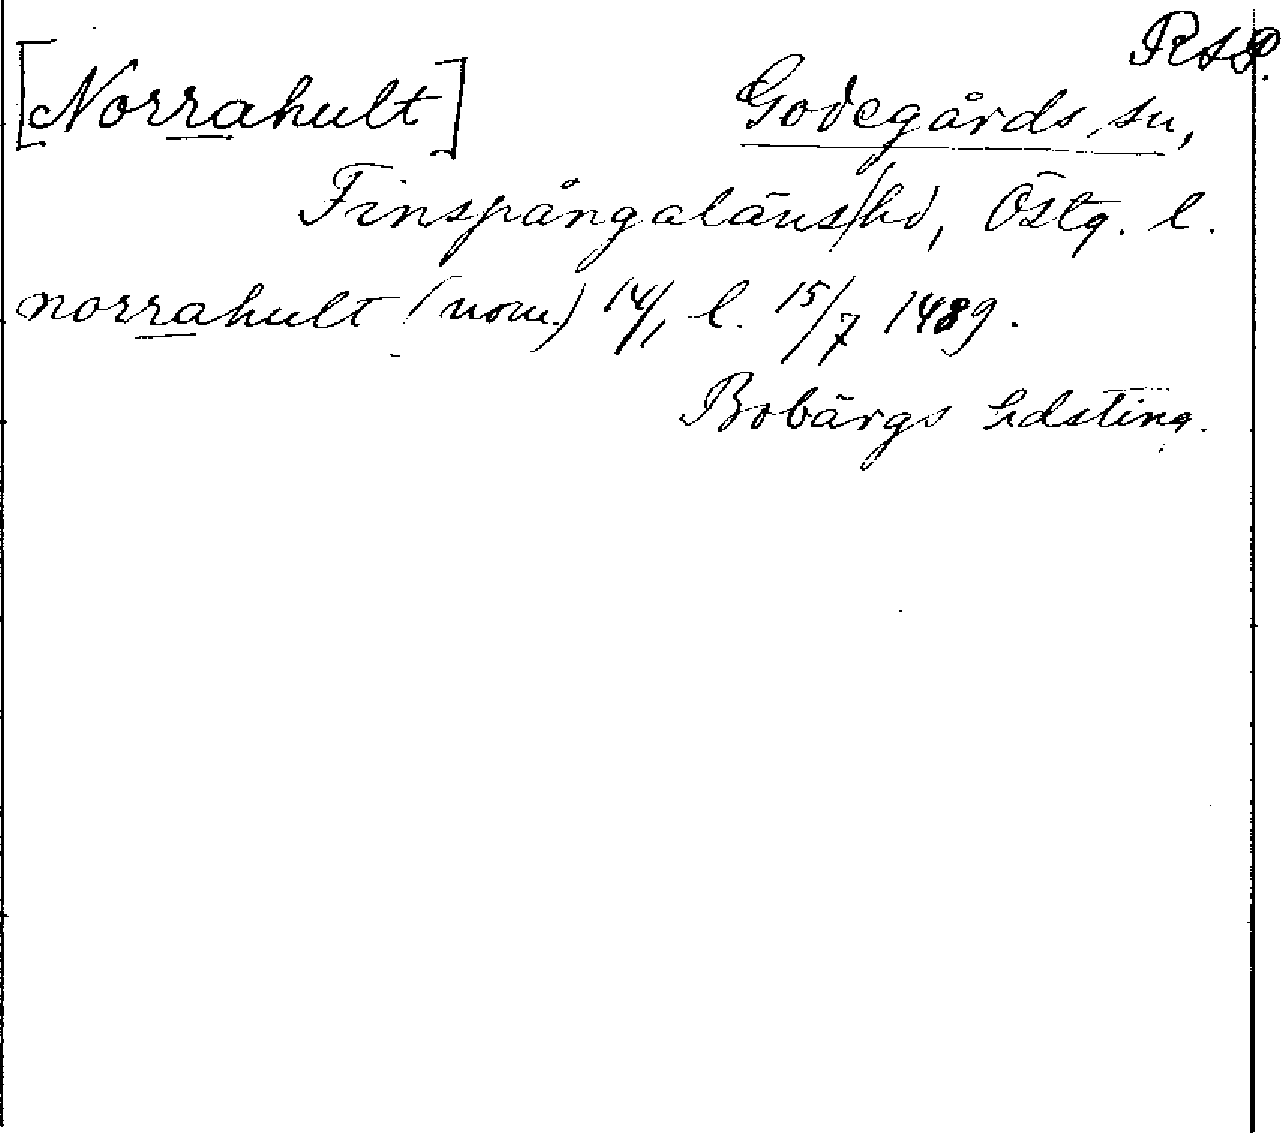 RAP.
[Norrahult] Godegårds sn,
Finspångaläns hd, Östg. l.
norrahult (nom.) 14/1 l. 15/7 1489.
Bobärgs hdsting.